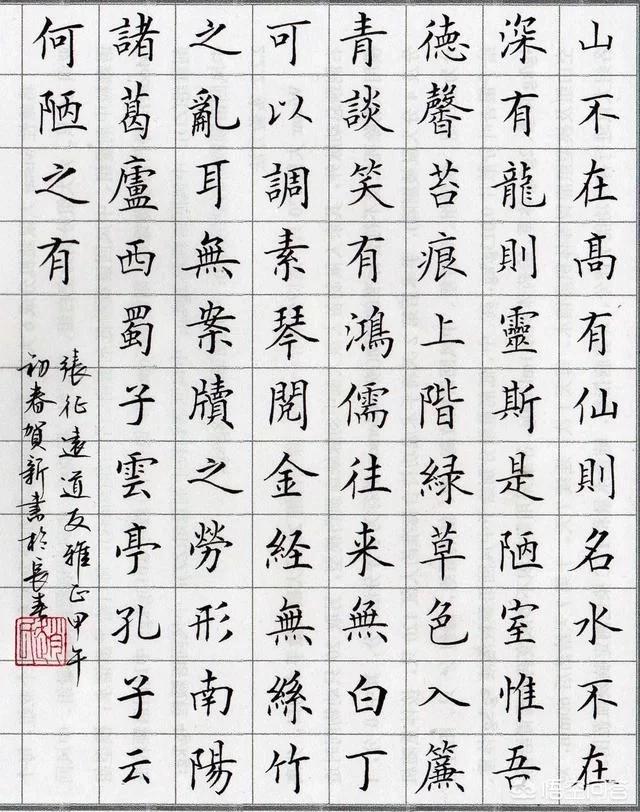 山不在髙有仙則名水不在
深有龍則靈斯是陋室惟吾
德馨苔痕上階緑草色入簾
青談笑有鴻儒往来無白丁
可以調素琴閱金経無絲竹
之亂耳無案牘之勞形南陽
諸葛廬西蜀子雲亭孔子云
何陋之有
張征遠道友雅正甲午
初春賀新書於長春
悟空问答